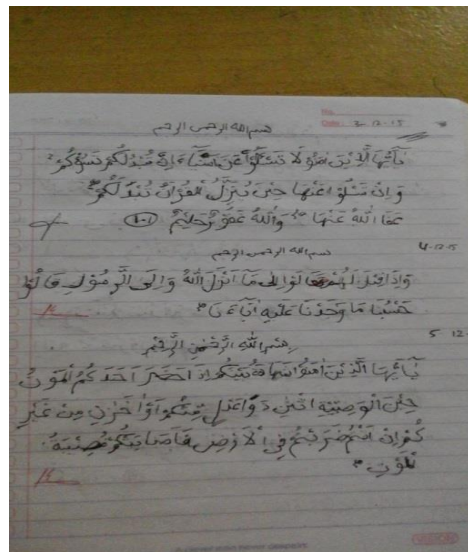 Date: 3-12-15
بسم الله الرحمن الرحيم
يٰۤاَيُّهَا الَّذِيْنَ اٰمَنُوْا لَا تَسْـَٔلُوْا عَنْ اَشْيَآءَ اِنْ تُبْدَ لَكُمْ تَسُؤْكُمْ
وَ اِنْ تَسْـَٔلُوْا عَنْهَا حِيْنَ يُنَزَّلُ الْقُرْاٰنُ تُبْدَ لَكُمْ
عَفَا اللّٰهُ عَنْهَا وَاللّٰهُ غَفُوْرٌ حَلِيْمٌ ۱۰۱
4-12-15
بسم الله الرحمن الرحيم
وَاِذَا قِيْلَ لَهُمْ تَعَالَوْا اِلٰى مَاۤ اَنْزَلَ اللّٰهُ وَ اِلَى الرَّسُوْلِ قَالُوْا
حَسْبُنَا مَا وَجَدْنَا عَلَيْهِ اٰبَآءَنَا
5 12
بِسْمِ اللهِ الرَّحْمٰنِ الرَّحِيْمِ
يٰۤاَيُّهَا الَّذِيْنَ اٰمَنُوْا شَهَادَةُ بَيْنِكُمْ اِذَا حَضَرَ اَحَدَكُمُ الْمَوْتُ
حِيْنَ الْوَصِيَّةِ اثْنٰنِ ذَوَا عَدْلٍ مِّنْكُمْ اَوْ اٰخَرٰنِ مِنْ غَيْرِ
كُمْ اِنْ اَنْتُمْ ضَرَبْتُمْ فِى الْاَرْضِ فَاَصَابَتْكُمْ مُّصِيْبَةُ
الْمَوْتِ